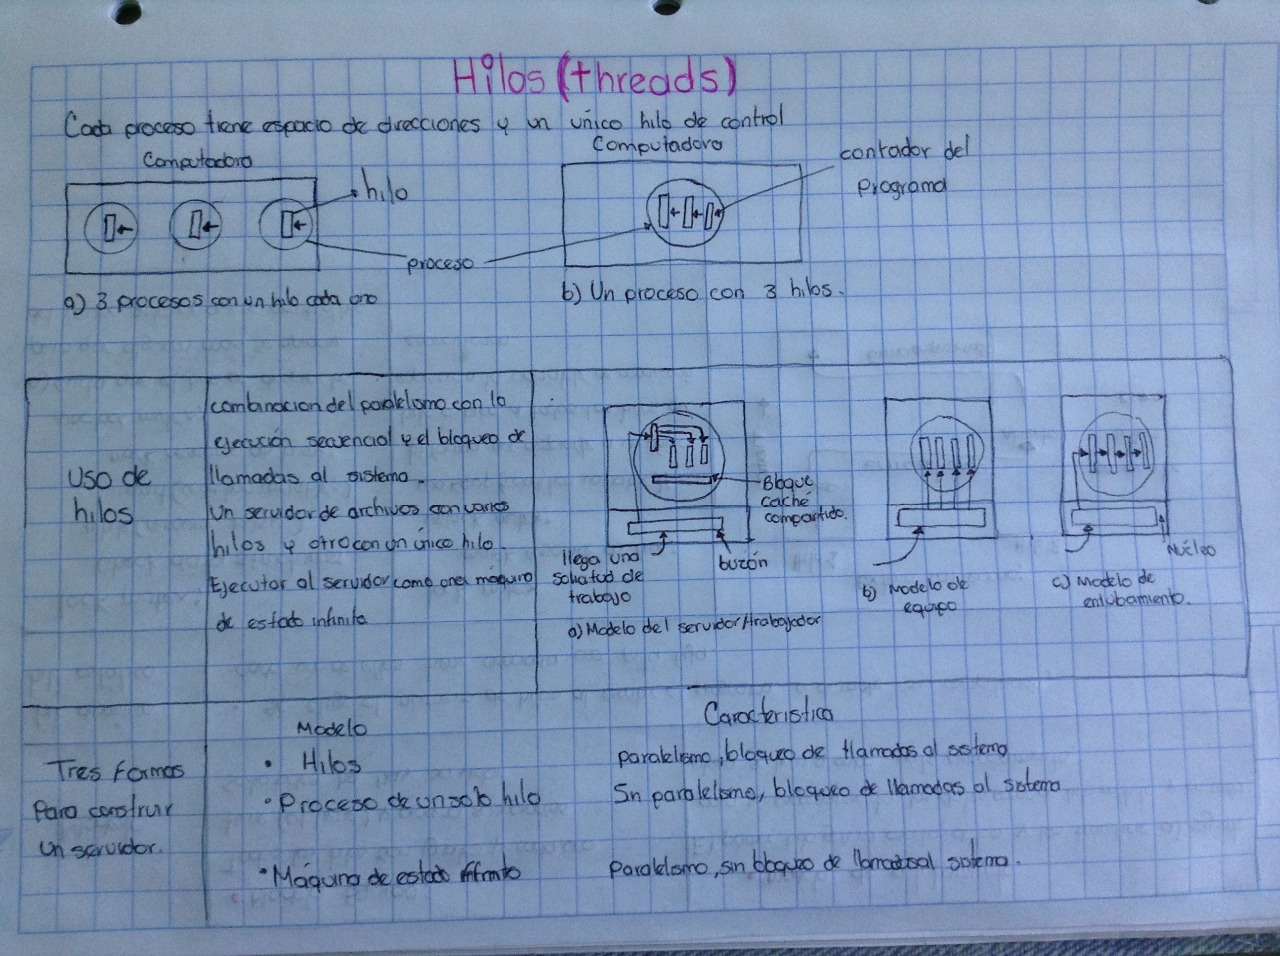 Hilos (threads)
Cada proceso tiene espacio de direcciones y un único hilo de control
Computadora
hilo
proceso
a) 3 procesos con un hilo cada uno
Computadora
contador del
programa
b) Un proceso con 3 hilos.
Uso de
hilos
combinacion del paralelismo con la
ejecución secuencial y el bloqueo de
llamadas al sistema.
Un servidor de archivos con varios
hilos y otro con un único hilo.
Ejecutar al servidor como una máquina
de estado infinito
Bloque
caché
compartido.
llega una
solicitud de
trabajo
buzón
a) Modelo del servidor/trabajador
b) Modelo de
equipo
Núcleo
c) Modelo de
entubamiento.
Tres formas
para construir
un servidor.
Modelo
Caracteristica
• Hilos
paralelismo, bloqueo de llamadas al sistema
• Proceso de un solo hilo
Sin paralelismo, bloqueo de llamadas al sistema
• Máquina de estado finito
Paralelismo, sin bloqueo de llamadas al sistema.